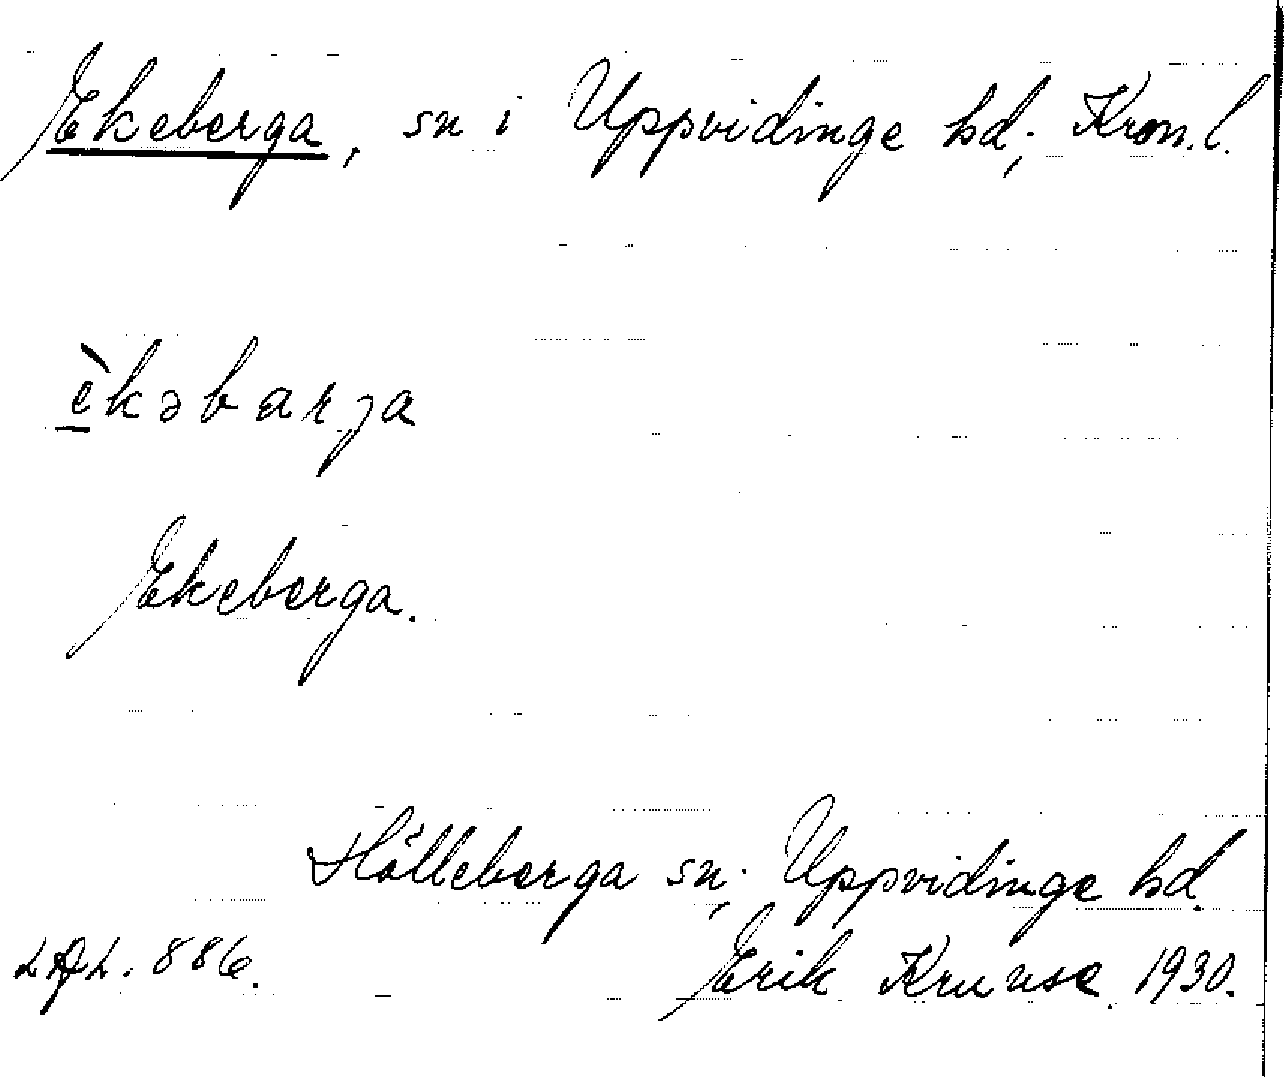 Ekeberga, sn i Uppvidinge hd; Kron. l.
èkəbarja
Ekeberga.
Hälleberga sn; Uppvidinge hd.
LDL. 886. Erik Kruuse 1930.